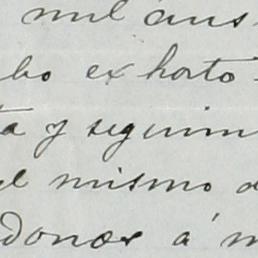 mil aus
bo exhorto
ta y seguim
el mismo d
donar á m